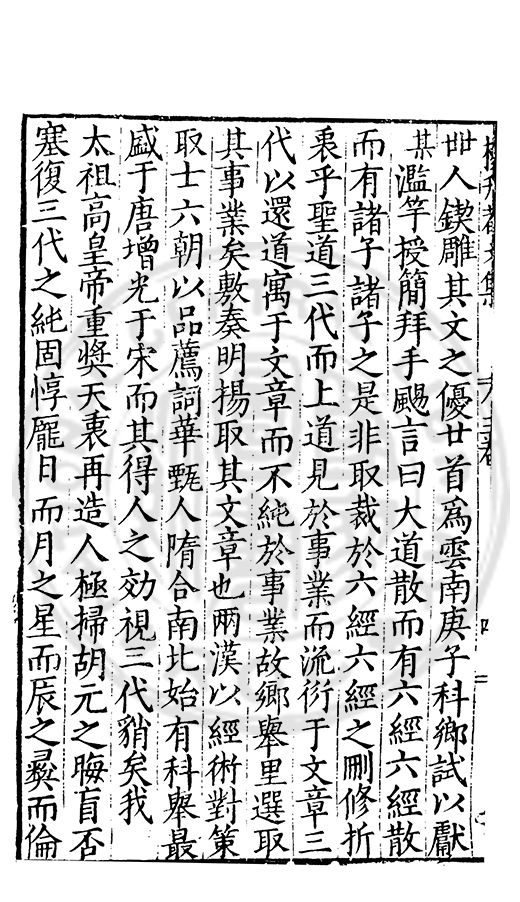 卋人鍥雕其文之優廿首爲雲南庚子科鄉試以獻
某濫竽授簡拜手颺言曰大道散而有六經六經散
而有諸子諸子之是非取裁於六經六經之刪修折
衷乎聖道三代而上道見於事業而流衍于文章三
代以還道寓于文章而不純於事業故鄉舉里選取
其事業矣敷奏明揚取其文章也兩漢以經術對策
取士六朝以品薦詞華甄人隋合南北始有科舉最
盛于唐增光于宋而其得人之効視三代貊矣我
太祖高皇帝重奬天衷再造人極掃胡元之晦盲否
塞復三代之純固惇龐日而月之星而辰之彛而倫